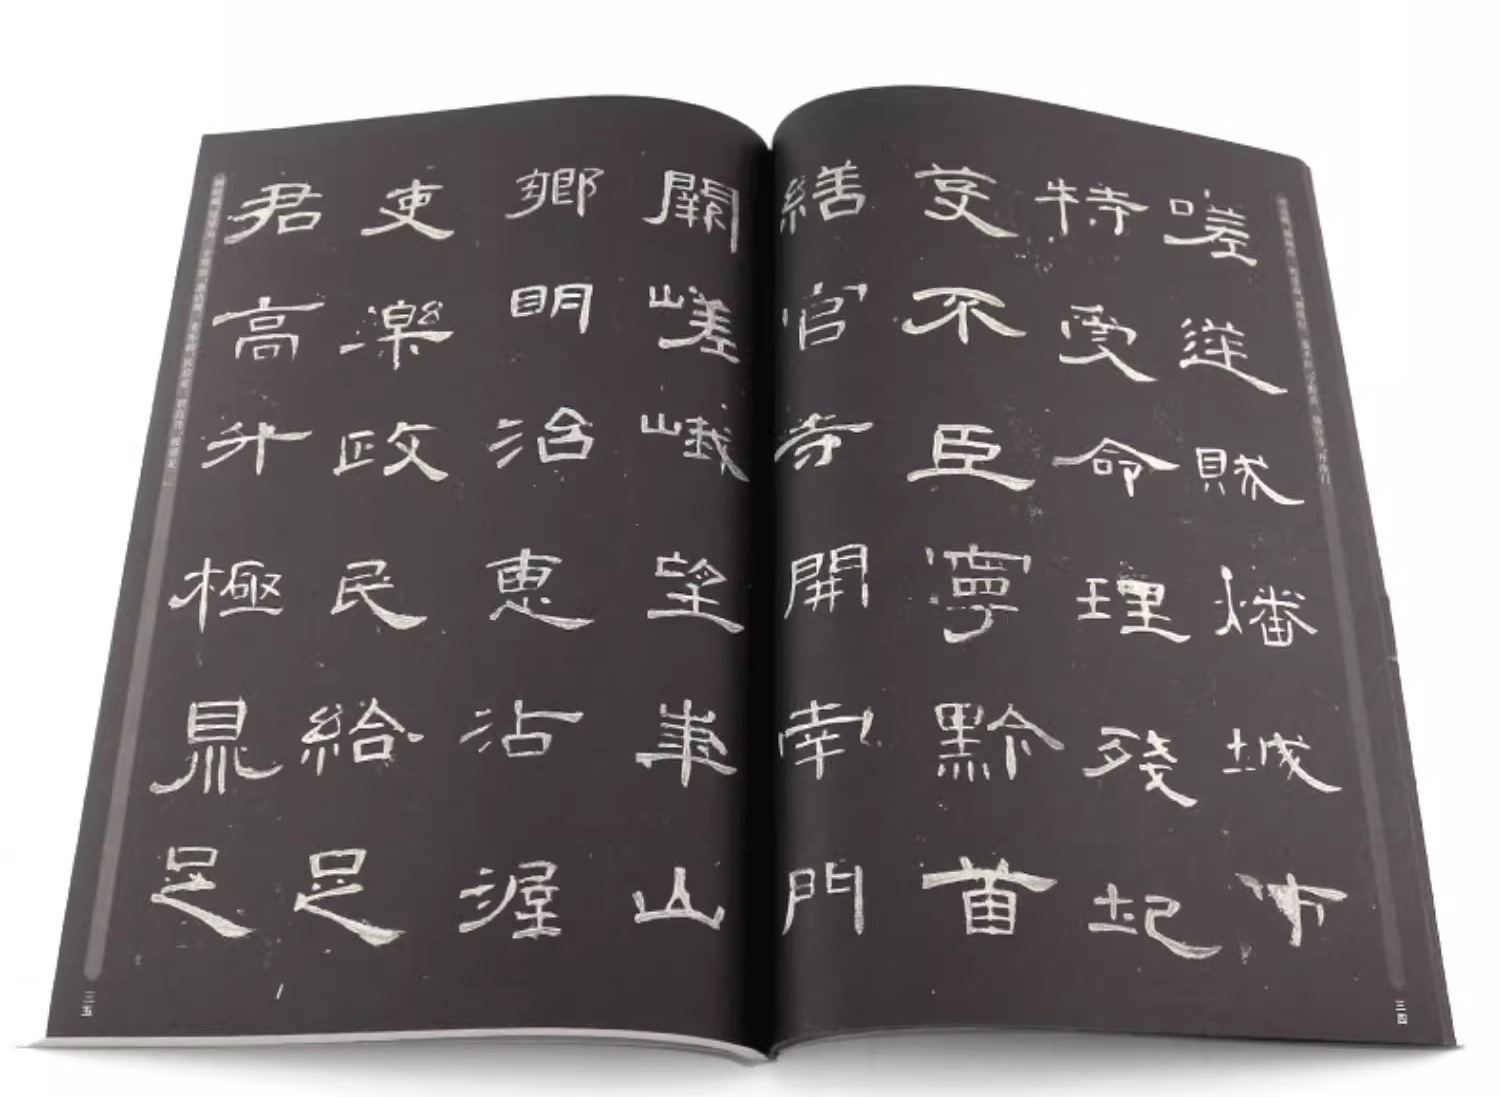 嗟逆賊燔城市
特受命理殘圮
芟不臣寧黔首
繕官寺開南門
闕嵯峨望華山
鄉明治惠沾渥
吏樂政民給足
君高升極鼎足
三四
三五